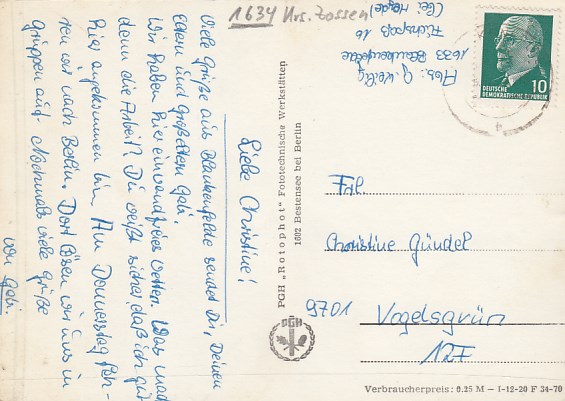 1634 Krs. Zossen
Abs: G.
1633 Blankenfelde
16
(bei Heyde)
DEUTSCHE
DEMOKRATISCHE REPUBLIK
10
Liebe Christine!
Viele Grüße aus Blankenfelde sendet Dir, Deinen
Eltern und Großeltern Gabi.
Wir haben hier einwandfreies Wetter. Was macht
denn die Arbeit? Du weißt sicher, daß ich gut
hier angekommen bin. Am Donnerstag fah-
ren wir nach Berlin. Dort lösen wir uns in
Gruppen auf. Nochmals viele Grüße
von Gabi
PGH „Rotophot“ Fototechnische Werkstätten
1602 Bestensee bei Berlin
PGH
Frl.
Christine Gündel
9701 Vogelsgrün
127
Verbraucherpreis: 0.25 M – I-12-20 F 34-70